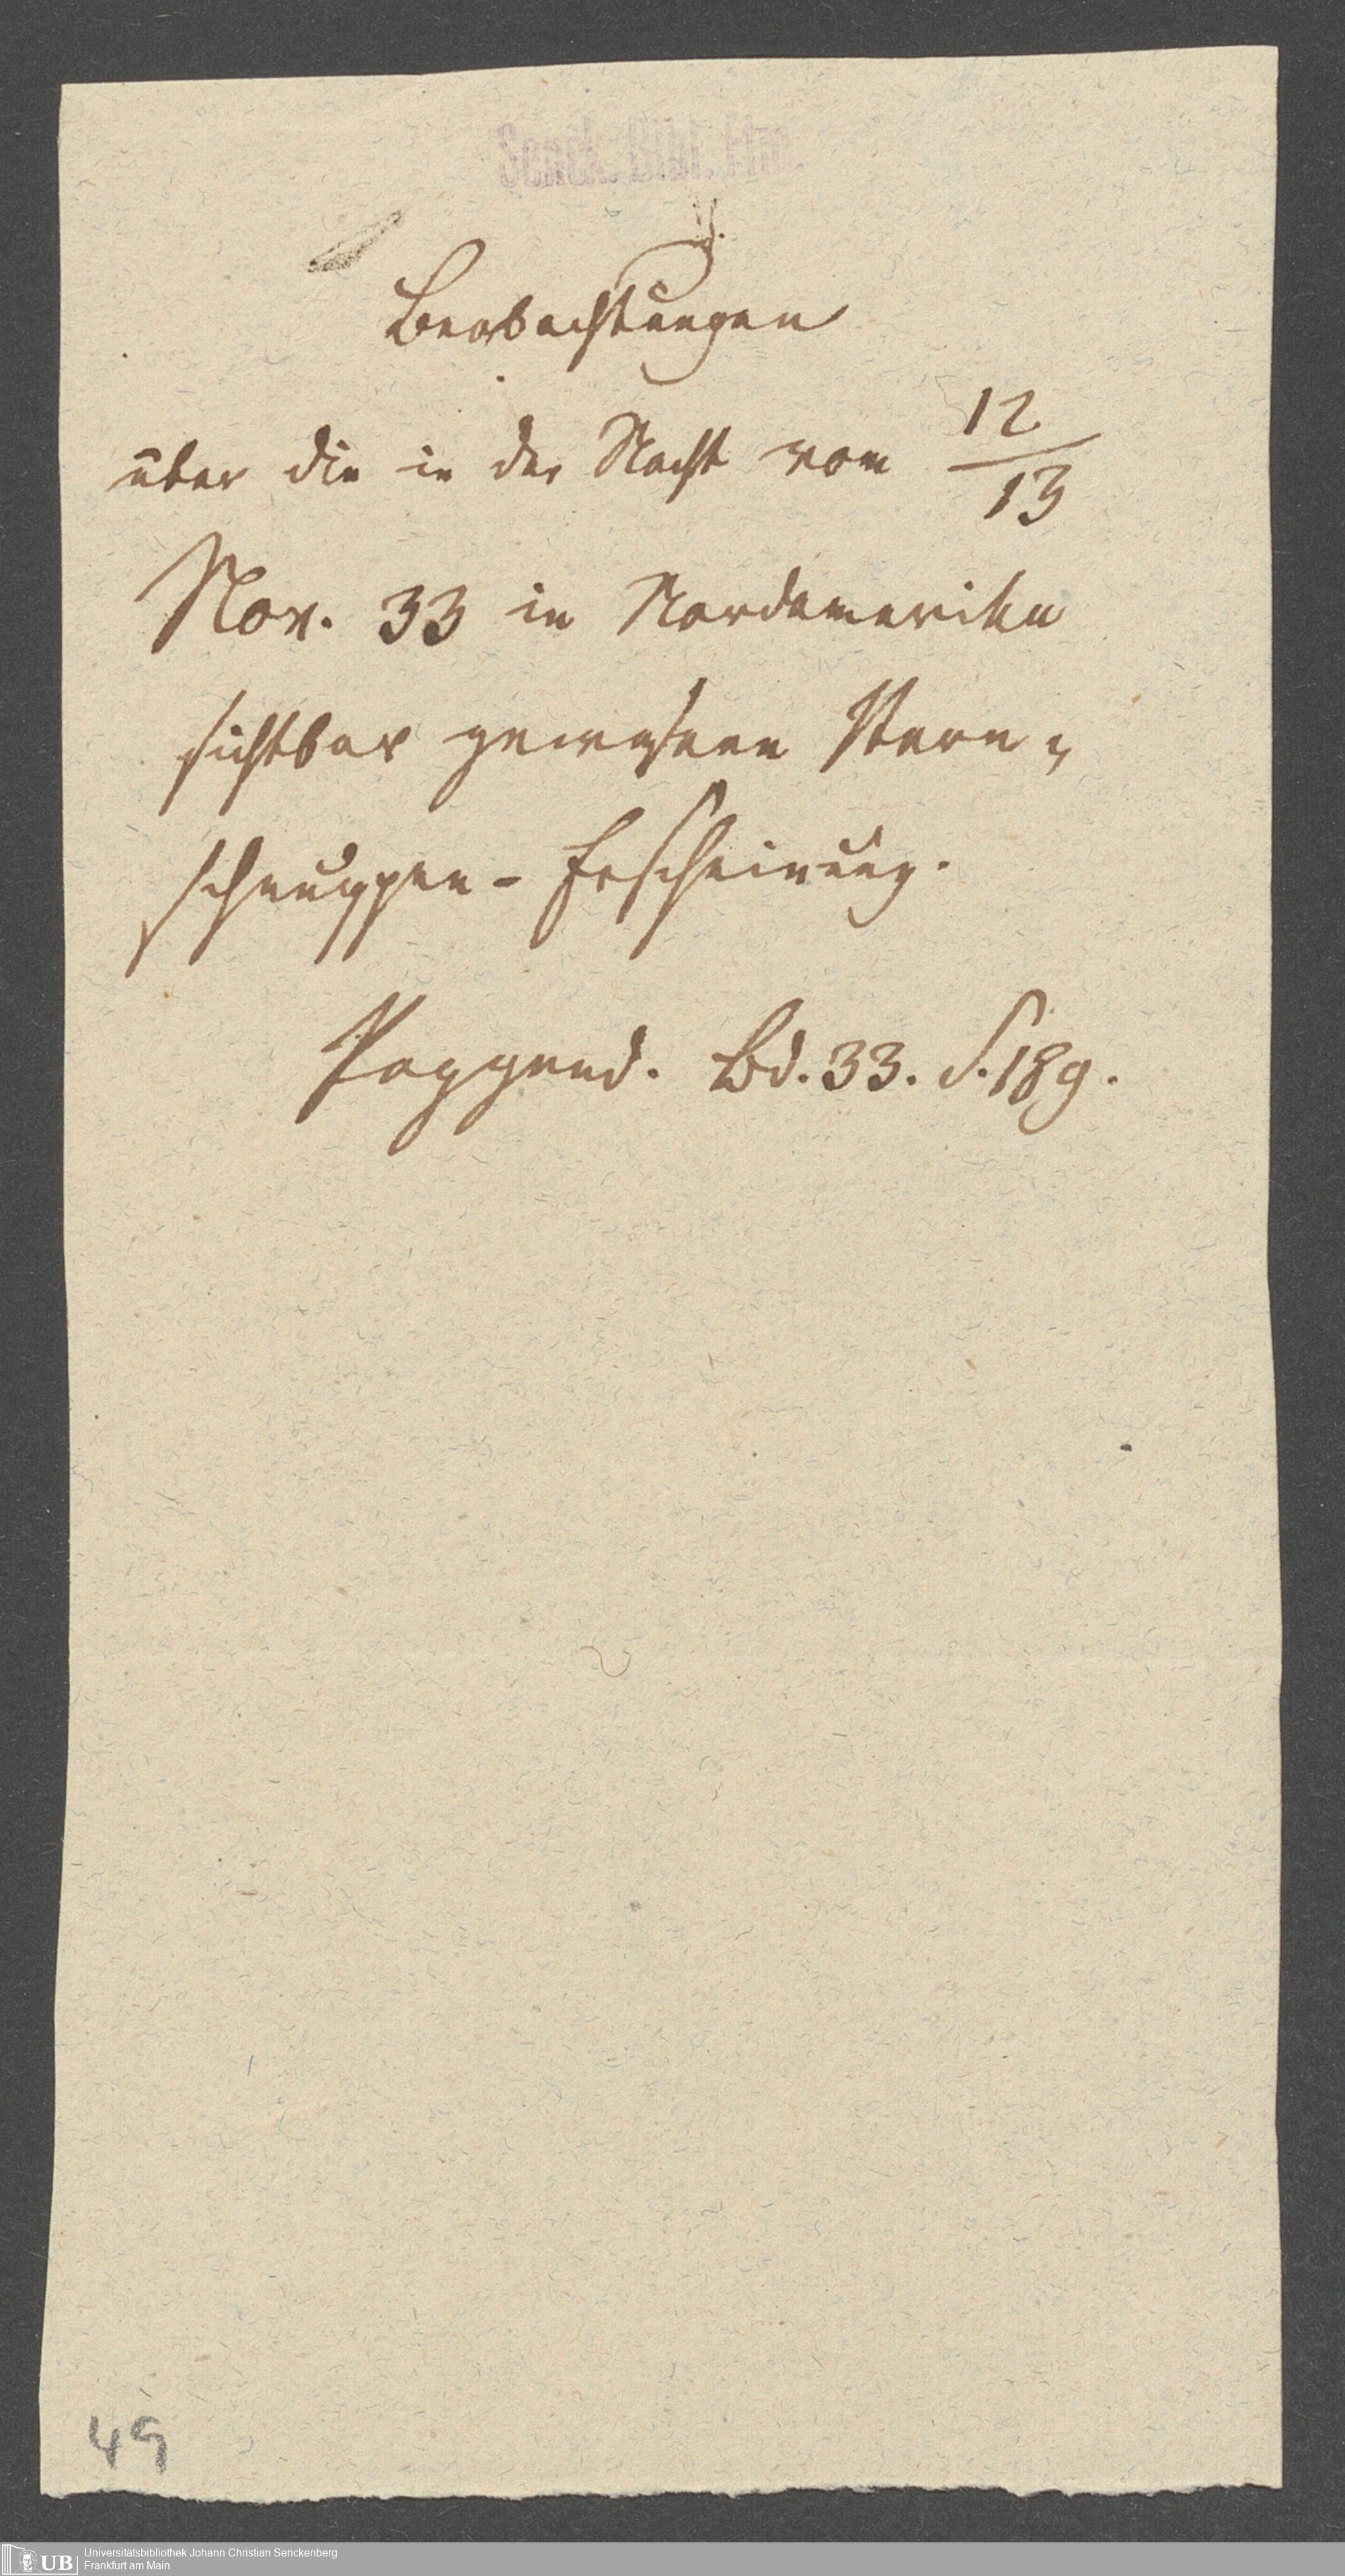 Senck. Bibl. Ffm.
Beobachtungen
über die in der Nacht vom 12/13
Nov. 33 in Nordamerika
sichtbar gewesene Stern-
schnuppen-Erscheinung.
Poggend. Bd. 33. S. 189.
49
UB Universitätsbibliothek Johann Christian Senckenberg
Frankfurt am Main